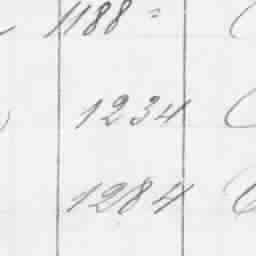 1188 =
1234
1284